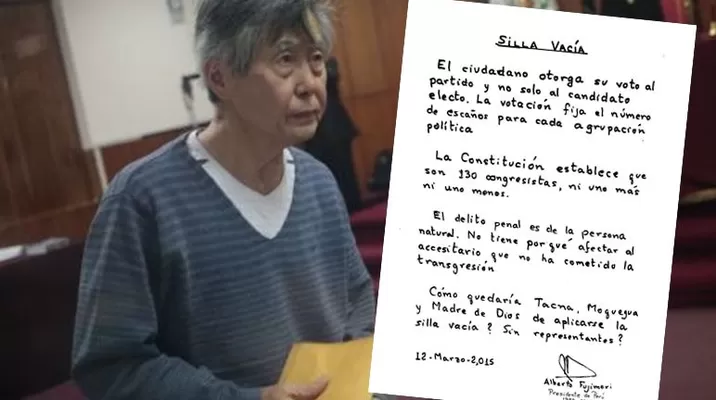 SILLA VACÍA
El ciudadano otorga su voto al
partido y no solo al candidato
electo. La votación fija el número
de escaños para cada agrupación
política
La Constitución establece que
son 130 congresistas, ni uno más
ni uno menos.
El delito penal es de la persona
natural. No tiene por qué afectar al
accesitario que no ha cometido la
transgresión
Cómo quedaría Tacna, Moquegua
y Madre de Dios de aplicarse la
silla vacía? Sin representantes?
12-Marzo-2,015
Alberto Fujimori
Presidente de Perú